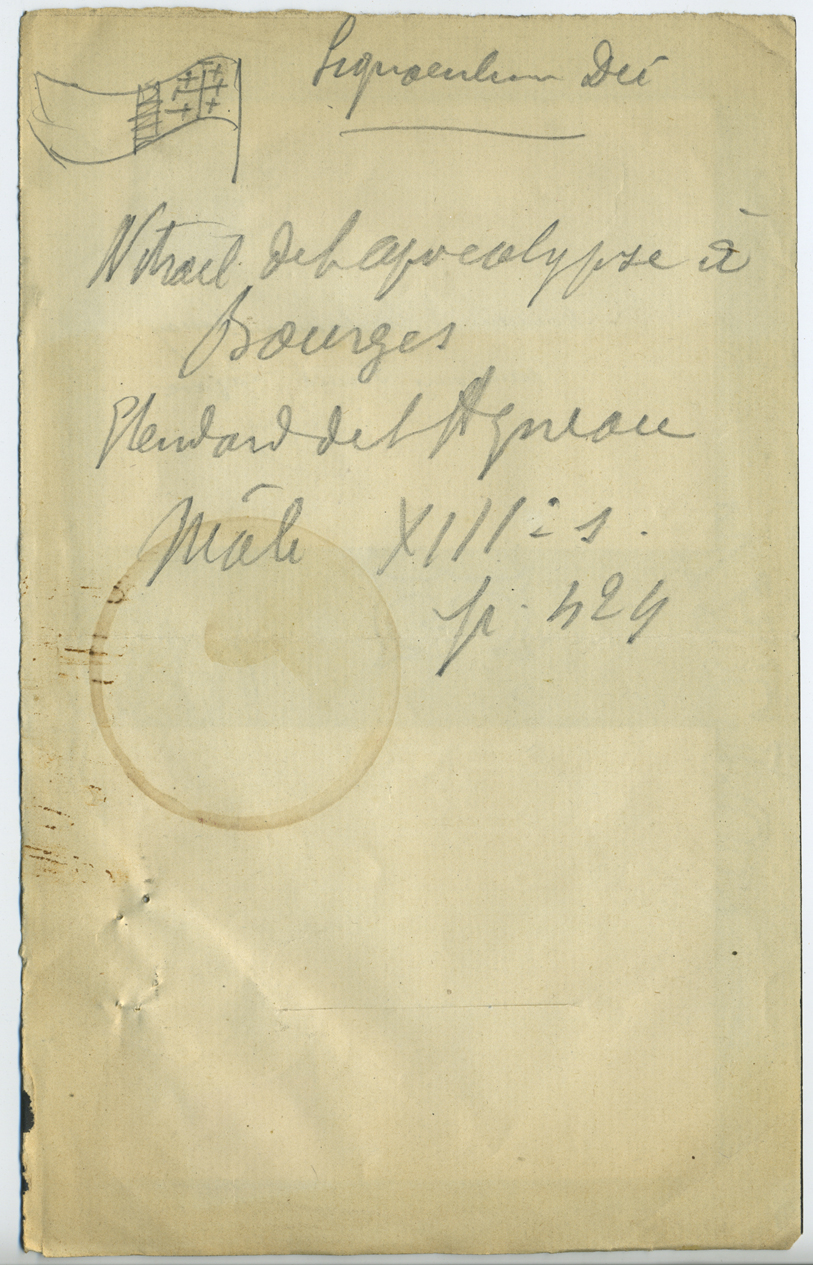 Signaculum Dei
Vitrail de l'apocalypse à
Bourges
Etendard de l'Agneau
Mâle XIIIe s.
p. 424